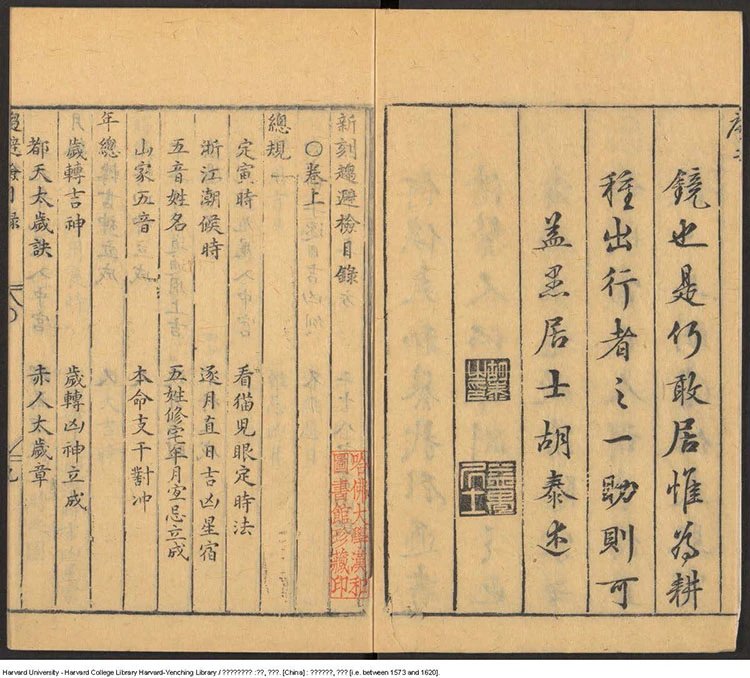 鏡也是仍敢居惟為耕
種出行者之一助則可
蓋愚居士胡泰述
新刻趨避檢目錄
○卷上
總規
定寅時
看猫兒眼定時法
浙江潮候時
逐月直日吉凶星宿
五音姓名
五姓修宅年月宜忌立成
山家五音
本命支干對冲
年總
歲轉吉神
歲轉凶神立成
都天太歲訣
赤人太歲章
哈佛大學漢和
圖書館珍藏印
Harvard University - Harvard College Library Harvard-Yenching Library / ???????? :??, ???. [China] : ??????, ??? [i.e. between 1573 and 1620].